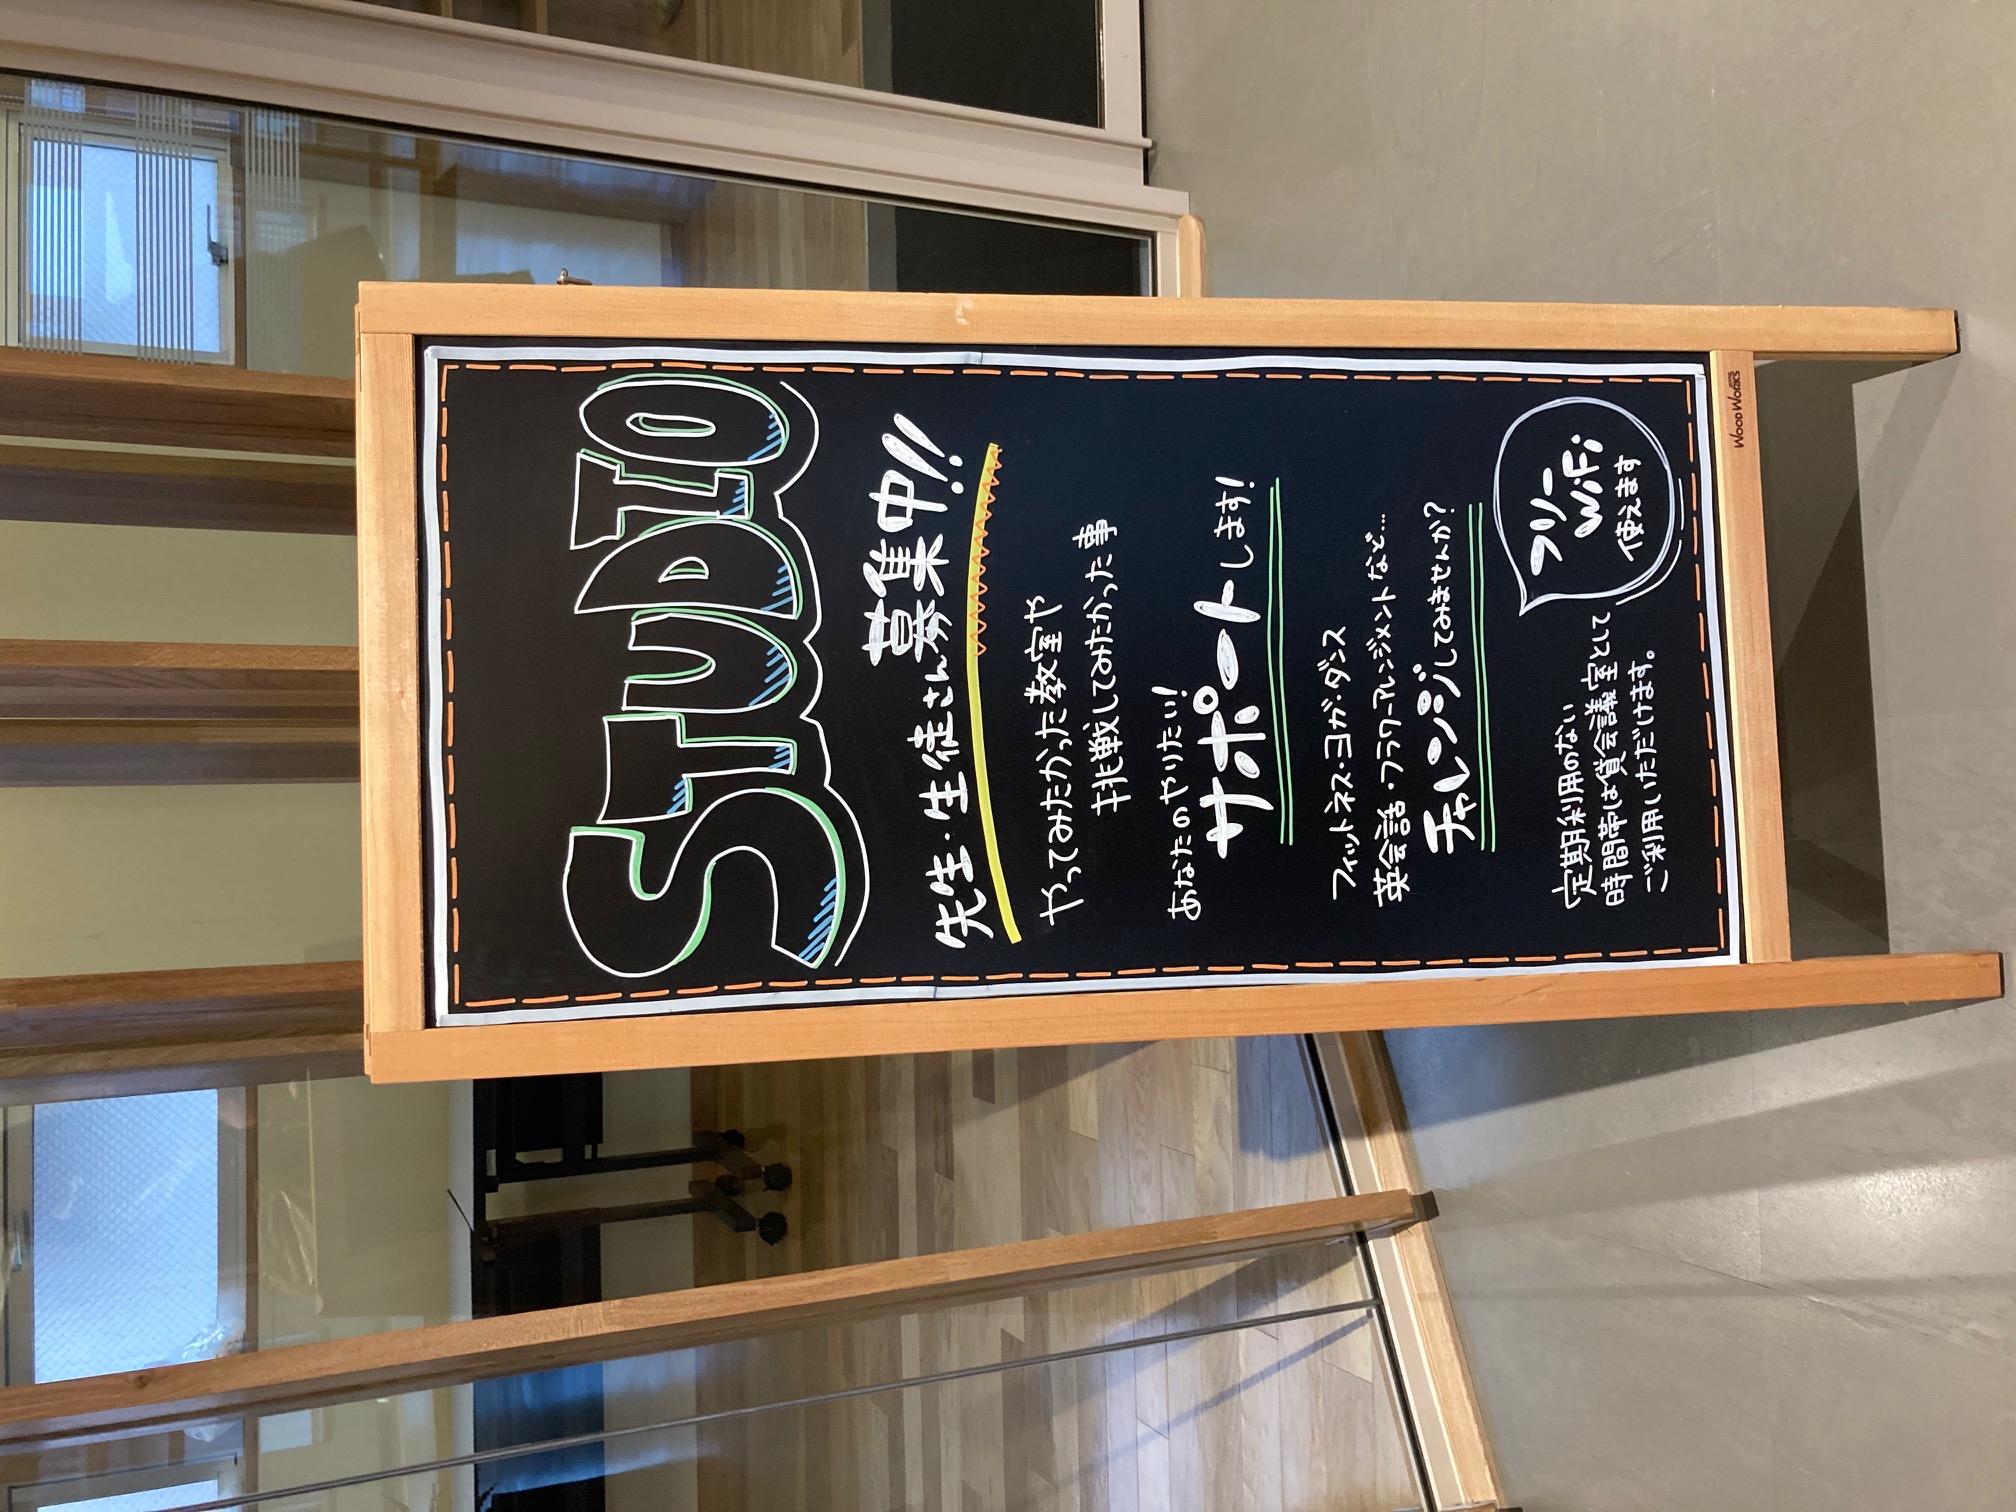 STUDIO
先生・生徒さん募集中!!
やってみたかった教室や
挑戦してみたかった事
あなたのやりたい!
サポートします!
フィットネス・ヨガ・ダンス
英会話・フラワーアレンジメントなど...
チャレンジしてみませんか?
フリー
WiFi
使えます
定期利用のない
時間帯は貸会議室として
ご利用いただけます。
WOODWORKS